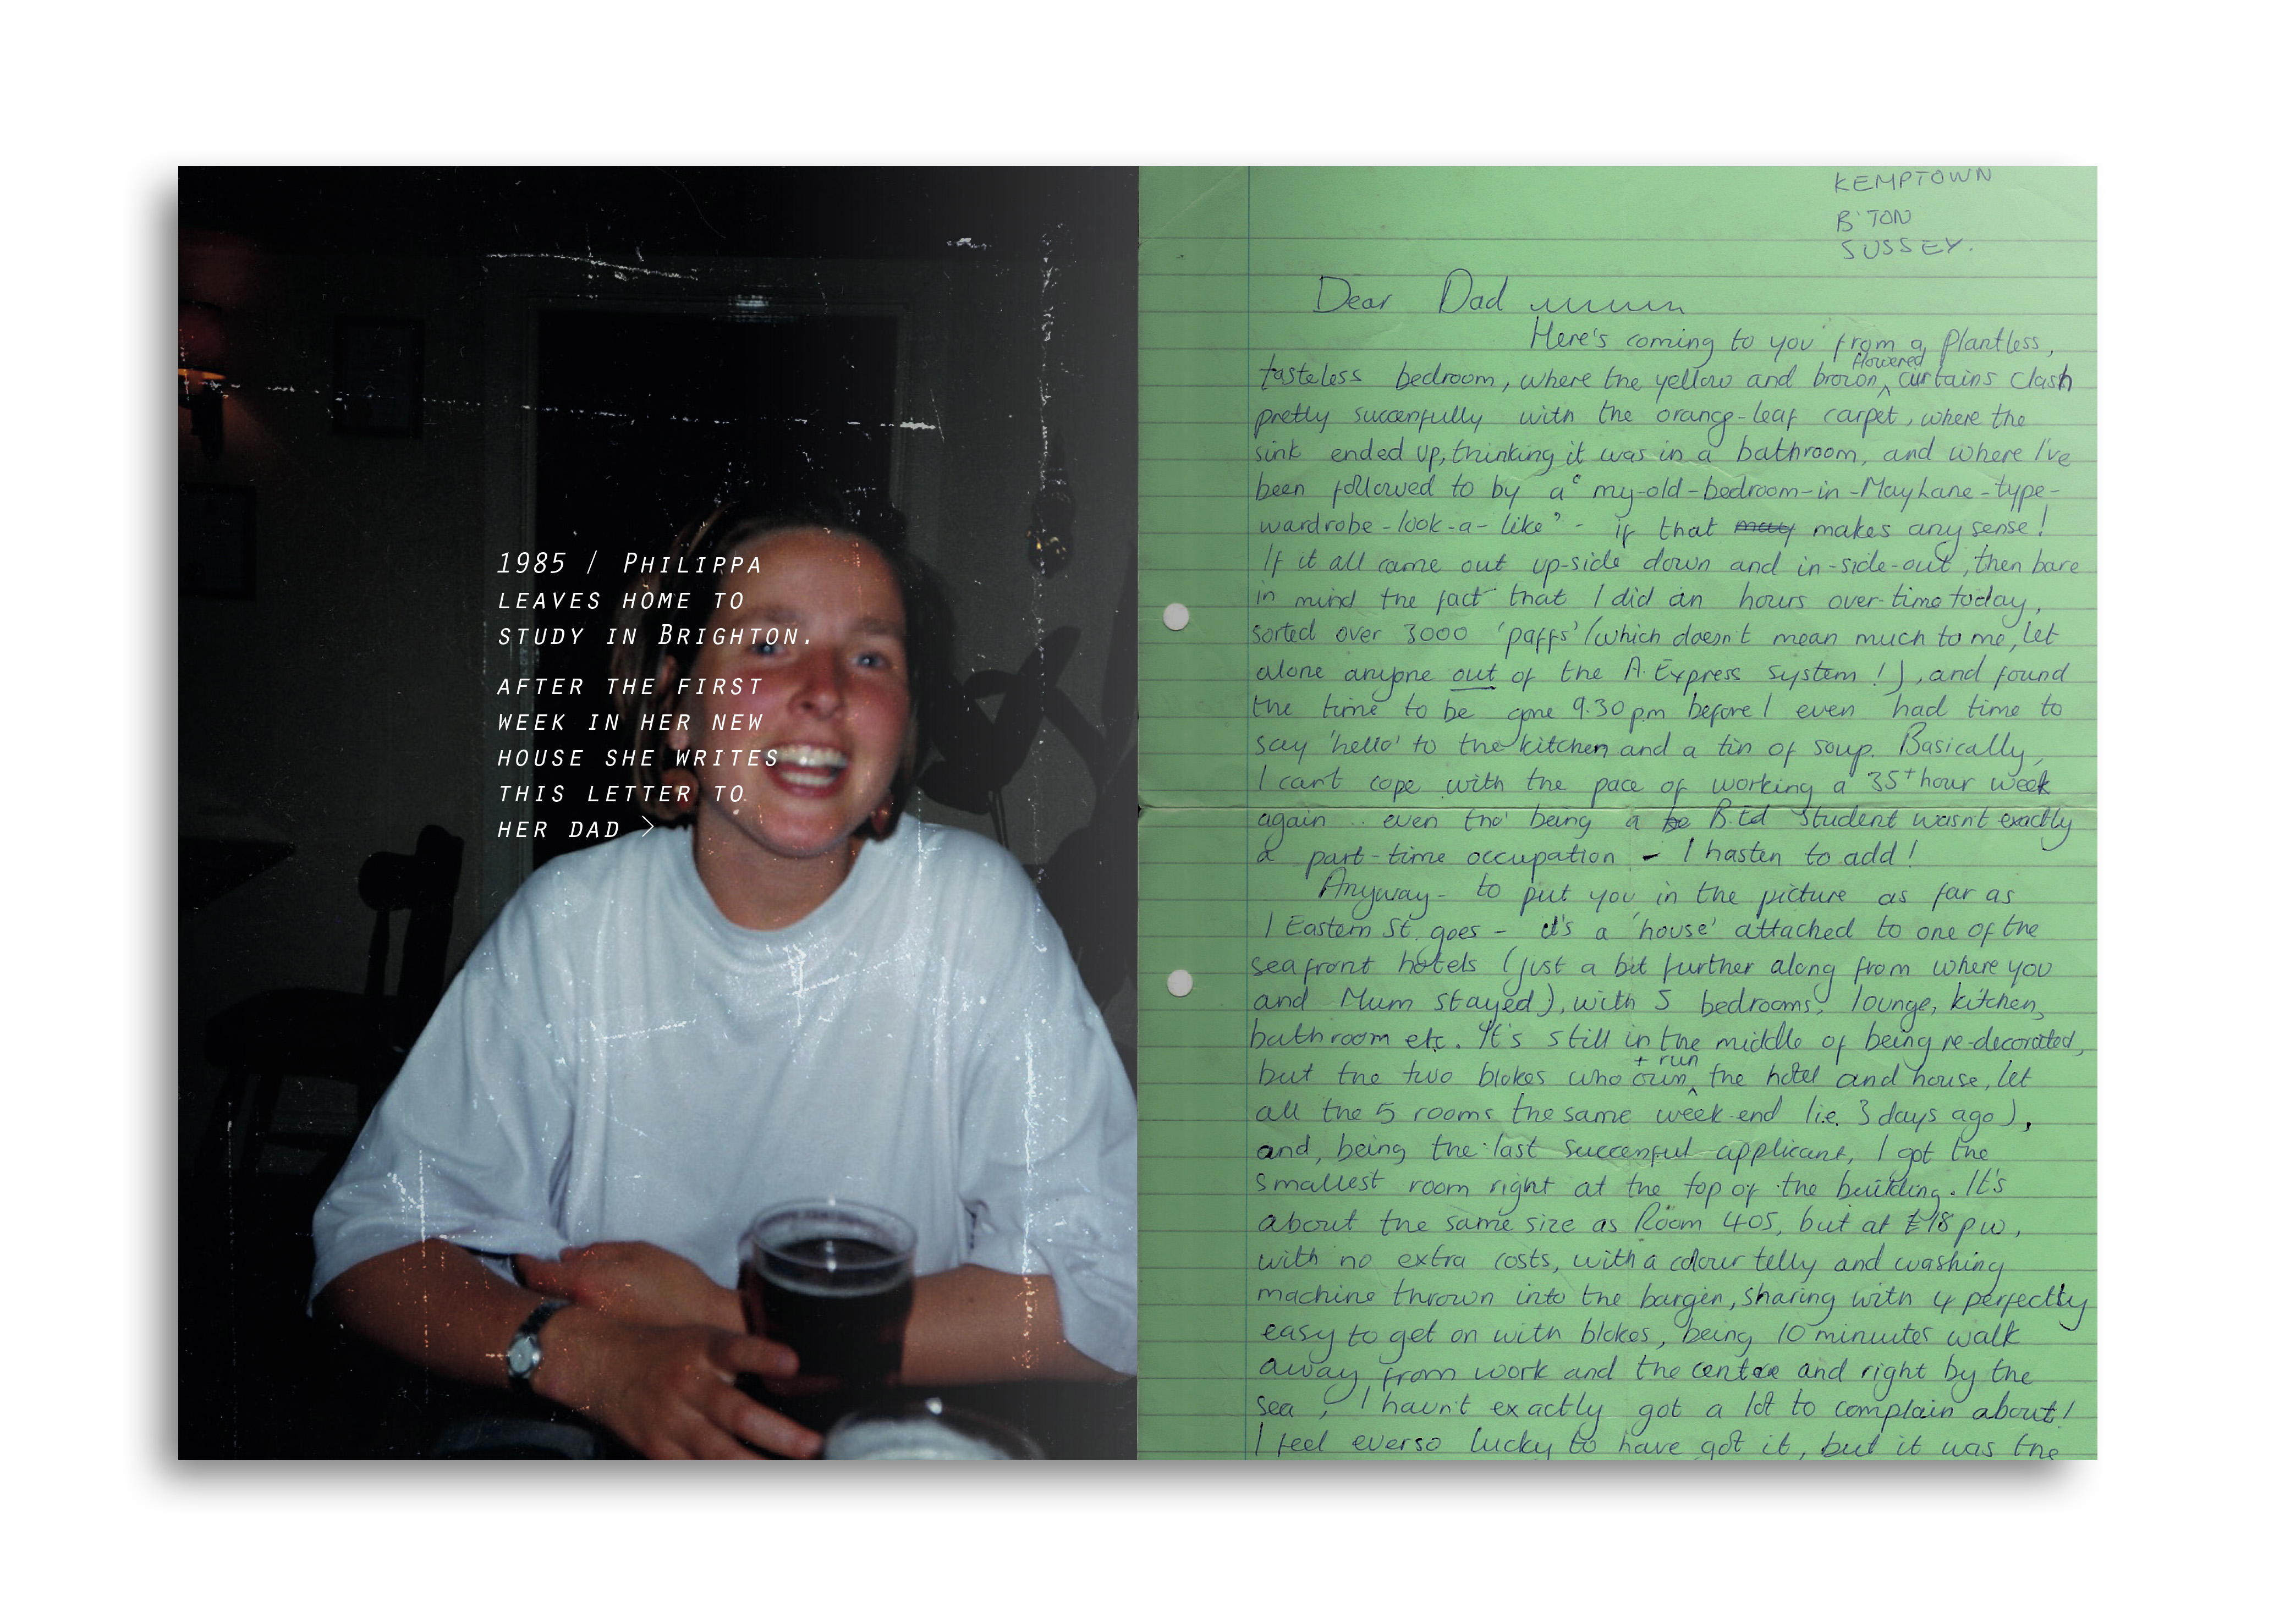 1985 / Philippa
leaves home to
study in Brighton.
after the first
week in her new
house she writes
this letter to
her dad >
KEMPTOWN
B'TON
SUSSEX.
Dear Dad
Here's coming to you from a plantless,
tasteless bedroom, where the yellow and brown flowered curtains clash
pretty succesfully with the orange-leaf carpet, where the
sink ended up, thinking it was in a bathroom, and where I've
been followed to by a "my-old-bedroom-in-May Lane-type-
wardrobe-look-a-like" - if that makes any sense!
If it all came out up-side down and in-side-out, then bare
in mind the fact that I did an hours over-time today,
sorted over 3000 'paffs' (which doesn't mean much to me, let
alone anyone out of the A. Express system!), and found
the time to be gone 9.30pm before I even had time to
say 'hello' to the kitchen and a tin of soup. Basically,
I can't cope with the pace of working a 35+ hour week
again .. even tho' being a B.Ed student wasnt exactly
a part-time occupation - I hasten to add!
Anyway - to put you in the picture as far as
1 Eastern St. goes - it's a 'house' attached to one of the
seafront hotels (just a bit further along from where you
and Mum stayed), with 5 bedrooms, lounge, kitchen,
bathroom etc. It's still in the middle of being re-decorated,
but the two blokes who own + run the hotel and house, let
all the 5 rooms the same week-end (i.e. 3 days ago),
and, being the last succesful applicant, I got the
smallest room right at the top of the building. It's
about the same size as Room 405, but at £18 pw,
with no extra costs, with a colour telly and washing
machine thrown into the bargin, sharing with 4 perfectly
easy to get on with blokes, being 10 minutes walk
away from work and the centre and right by the
sea, I havn't exactly got a lot to complain about!
I feel everso lucky to have got it, but it was the